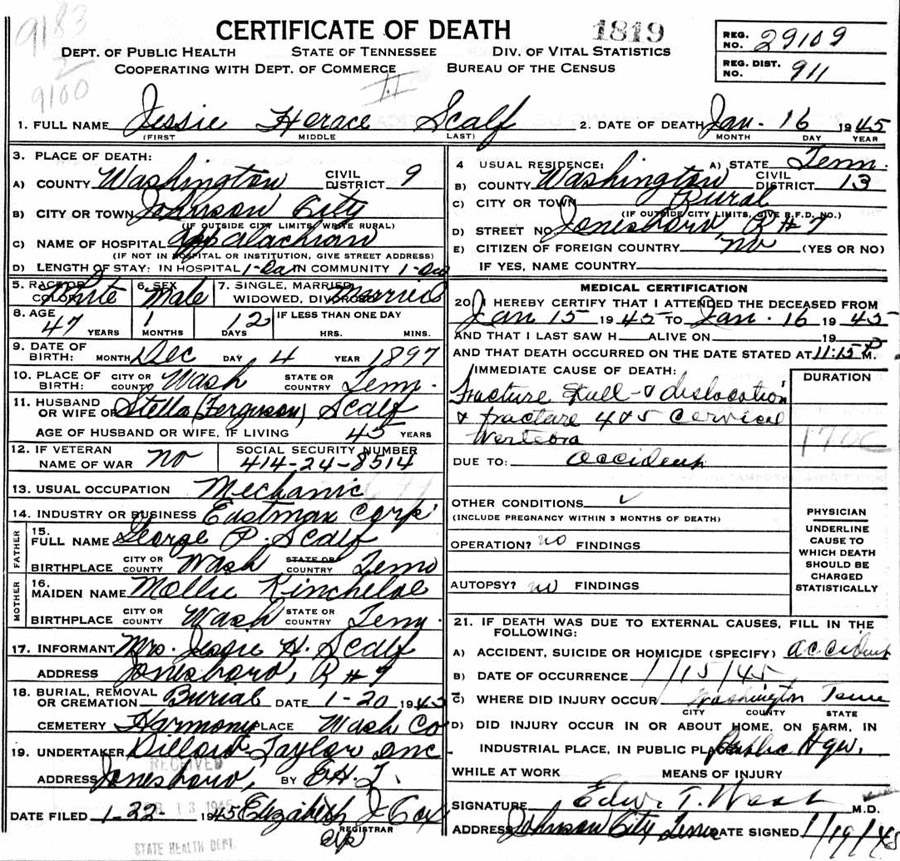 9183
9100
CERTIFICATE OF DEATH
1819
DEPT. OF PUBLIC HEALTH STATE OF TENNESSEE DIV. OF VITAL STATISTICS
COOPERATING WITH DEPT. OF COMMERCE BUREAU OF THE CENSUS
REG. NO. 29109
REG. DIST. NO. 911
II
1. FULL NAME Jessie Horace Scalf 2. DATE OF DEATH Jan. 16 1945
(FIRST) MIDDLE LAST) MONTH DAY YEAR
3. PLACE OF DEATH:
A) COUNTY Washington CIVIL DISTRICT 9
B) CITY OR TOWN Johnson City
(IF OUTSIDE CITY LIMITS, WRITE RURAL)
C) NAME OF HOSPITAL Appalachian
(IF NOT IN HOSPITAL OR INSTITUTION, GIVE STREET ADDRESS)
D) LENGTH OF STAY: IN HOSPITAL 1-Da IN COMMUNITY 1-Da
4 USUAL RESIDENCE: A) STATE Tenn.
B) COUNTY Washington CIVIL DISTRICT 13
C) CITY OR TOWN Rural
(IF OUTSIDE CITY LIMITS, GIVE R.F.D. NO.)
D) STREET NO. Jonesboro R#7
E) CITIZEN OF FOREIGN COUNTRY no (YES OR NO)
IF YES, NAME COUNTRY
5. RACE OR COLOR White 6. SEX Male 7. SINGLE, MARRIED, WIDOWED, DIVORCED Married
8. AGE 47 YEARS 1 MONTHS 12 DAYS IF LESS THAN ONE DAY HRS. MINS.
9. DATE OF BIRTH: MONTH Dec DAY 4 YEAR 1897
10. PLACE OF BIRTH: CITY OR COUNTY Wash STATE OR COUNTRY Tenn.
11. HUSBAND OR WIFE OF Stella (Ferguson) Scalf
AGE OF HUSBAND OR WIFE, IF LIVING 45 YEARS
12. IF VETERAN NAME OF WAR no SOCIAL SECURITY NUMBER 414-24-8514
13. USUAL OCCUPATION Mechanic
14. INDUSTRY OR BUSINESS Eastman Corp.
FATHER
15. FULL NAME George P. Scalf
BIRTHPLACE CITY OR COUNTY Wash STATE OR COUNTRY Tenn
MOTHER
16. MAIDEN NAME Mollie Kincheloe
BIRTHPLACE CITY OR COUNTY Wash STATE OR COUNTRY Tenn.
17. INFORMANT Mrs. Jessie H. Scalf
ADDRESS Jonesboro, R#7
18. BURIAL, REMOVAL OR CREMATION Burial DATE 1-20 1945
CEMETERY Harmony PLACE Wash Co
19. UNDERTAKER Dillow-Taylor Inc
ADDRESS Jonesboro, BY E.H.T.
RECEIVED
DATE FILED 1-22- 1945 Elizabeth J. Cox
REGISTRAR
STATE HEALTH DEPT.
MEDICAL CERTIFICATION
20. I HEREBY CERTIFY THAT I ATTENDED THE DECEASED FROM
Jan 15 1945 TO Jan. 16 1945
AND THAT I LAST SAW H ALIVE ON 19
AND THAT DEATH OCCURRED ON THE DATE STATED AT 11:15 P.M.
IMMEDIATE CAUSE OF DEATH: DURATION
Fracture Skull & dislocation
& fracture 4 & 5 cervical
Vertebra
170c
DUE TO: accident
OTHER CONDITIONS ✓
(INCLUDE PREGNANCY WITHIN 3 MONTHS OF DEATH)
OPERATION? no FINDINGS
AUTOPSY? no FINDINGS
PHYSICIAN
UNDERLINE CAUSE TO WHICH DEATH SHOULD BE CHARGED STATISTICALLY
21. IF DEATH WAS DUE TO EXTERNAL CAUSES, FILL IN THE FOLLOWING:
A) ACCIDENT, SUICIDE OR HOMICIDE (SPECIFY) accident
B) DATE OF OCCURRENCE 1/15/45
C) WHERE DID INJURY OCCUR Washington Tenn
CITY COUNTY STATE
D) DID INJURY OCCUR IN OR ABOUT HOME, ON FARM, IN
INDUSTRIAL PLACE, IN PUBLIC PLACE Public Hgw.
WHILE AT WORK MEANS OF INJURY
SIGNATURE Edw. T. West M.D.
ADDRESS Johnson City Tenn DATE SIGNED 1/19/45